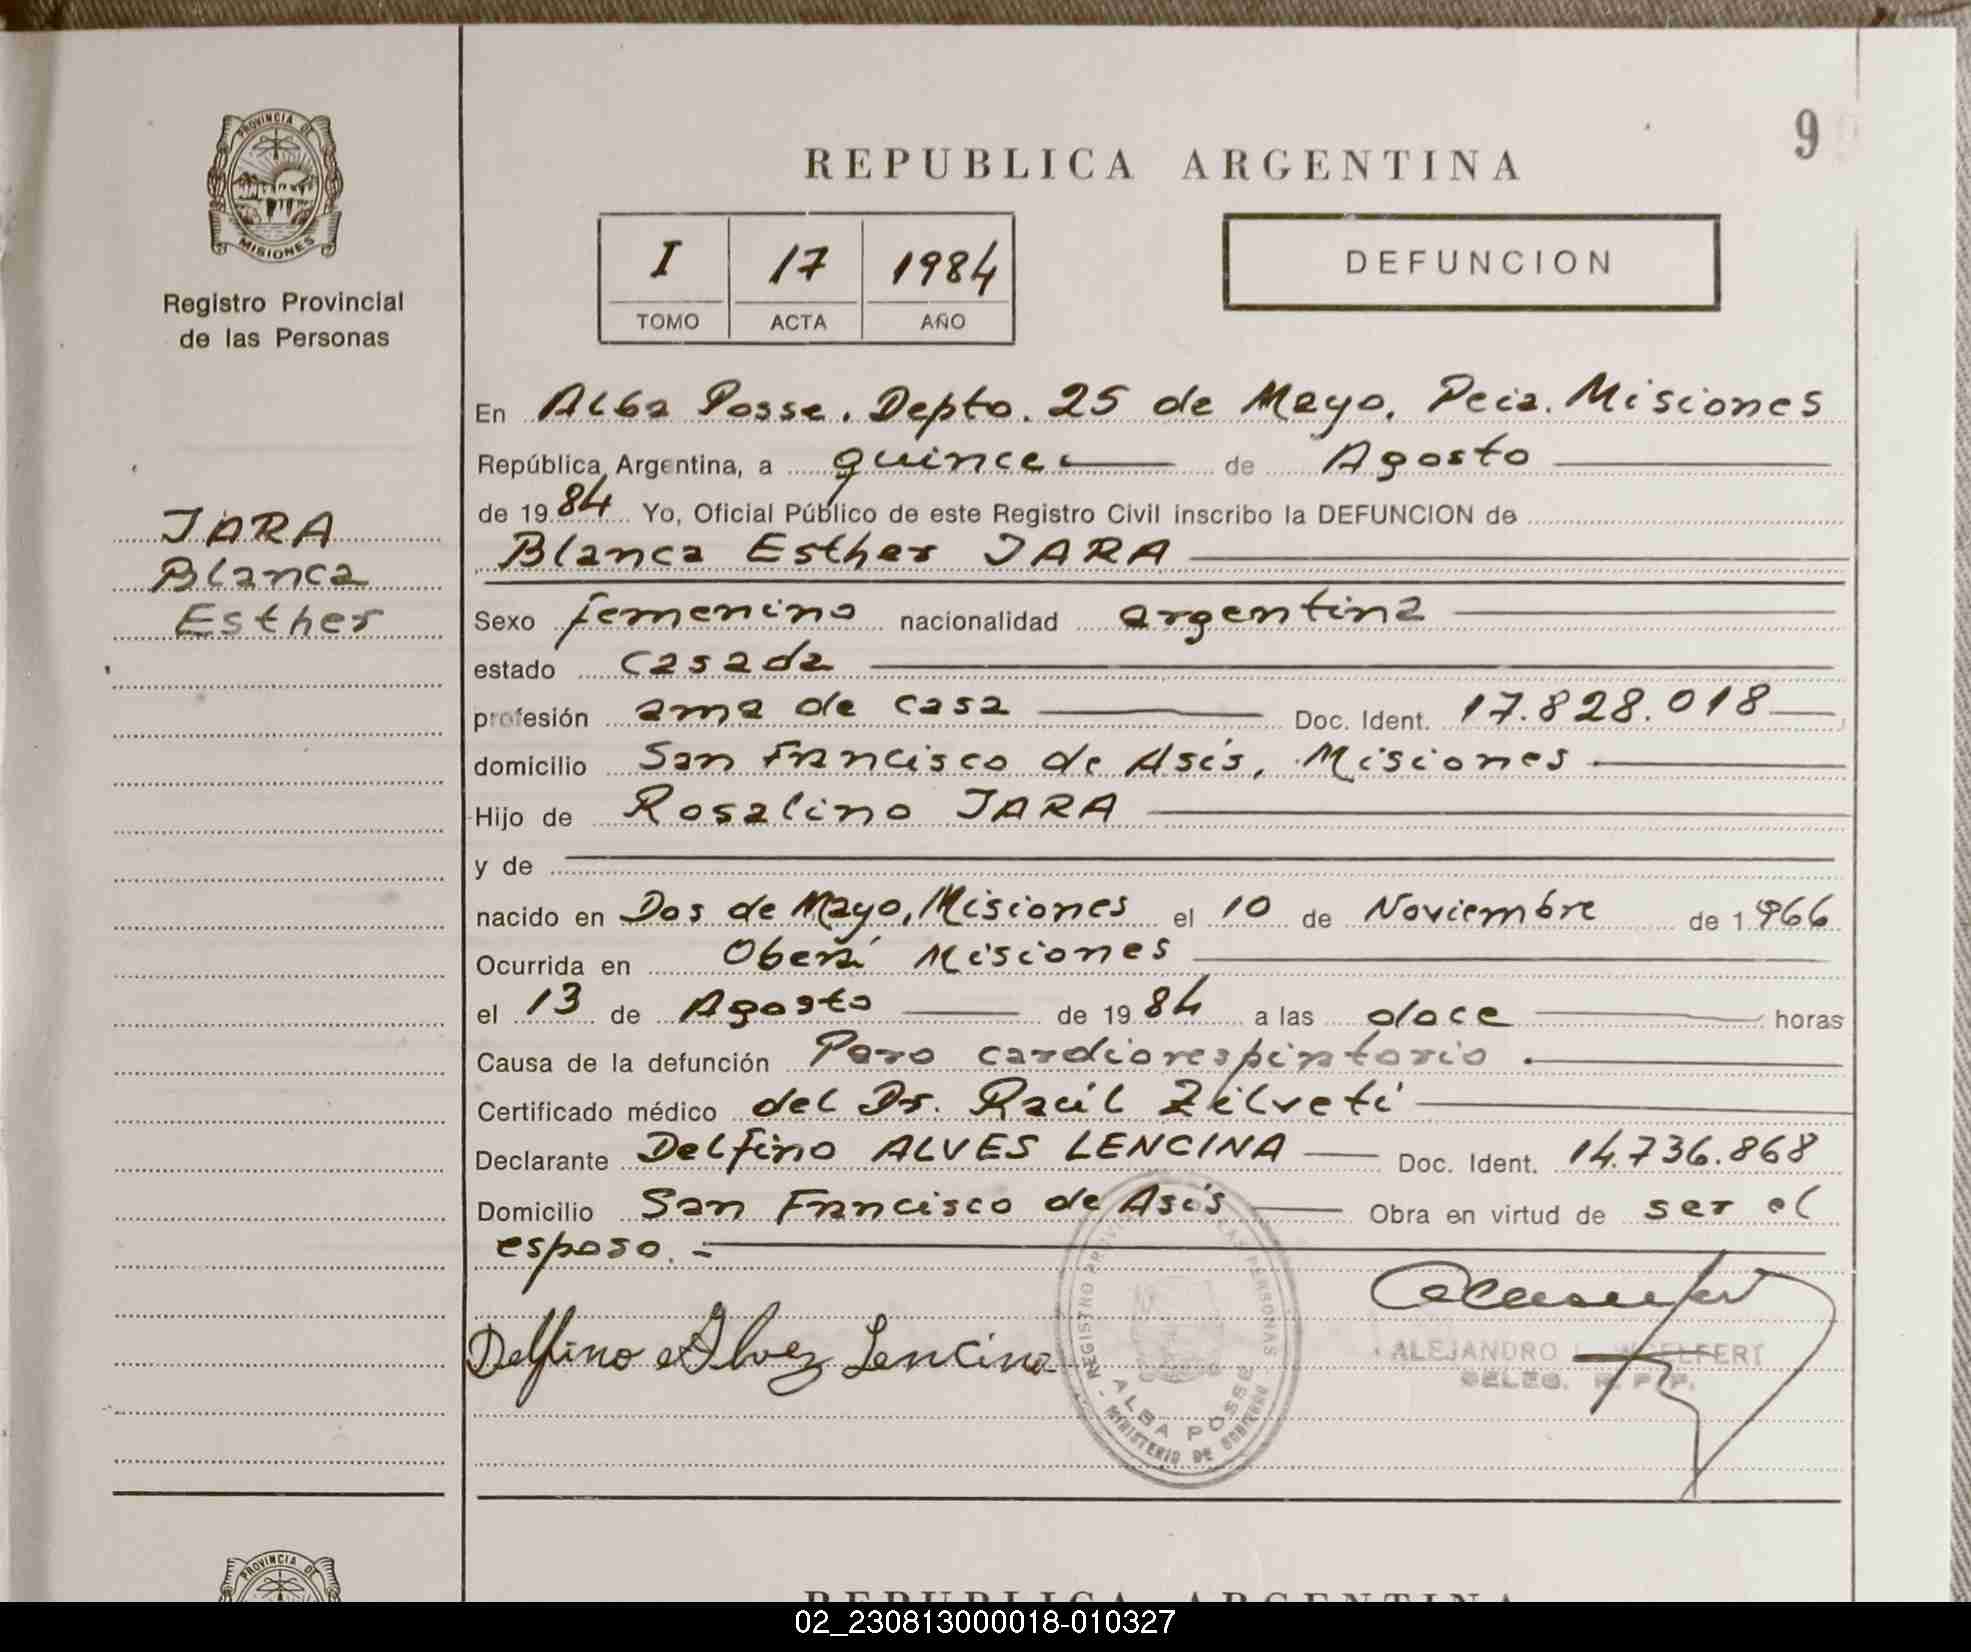 PROVINCIA DE
MISIONES
Registro Provincial
de las Personas
JARA
Blanca
Esther
9
REPUBLICA ARGENTINA
I 17 1984
TOMO ACTA AÑO
DEFUNCION
En Alba Posse. Depto. 25 de Mayo. Pcia. Misiones
República Argentina, a quince de Agosto
de 1984 Yo, Oficial Público de este Registro Civil inscribo la DEFUNCION de
Blanca Esther JARA
Sexo femenino nacionalidad argentina
estado casada
profesión ama de casa Doc. Ident. 17.828.018
domicilio San Francisco de Asís, Misiones
Hijo de Rosalino JARA
y de
nacido en Dos de Mayo, Misiones el 10 de Noviembre de 1966
Ocurrida en Oberá Misiones
el 13 de Agosto de 1984 a las doce horas
Causa de la defunción Paro cardiorespiratorio.
Certificado médico del Dr. Raúl Zilveti
Declarante Delfino ALVES LENCINA Doc. Ident. 14.736.868
Domicilio San Francisco de Asís Obra en virtud de ser el
esposo.-
Delfino Alvez Lencina
REGISTRO PROVINCIAL DE LAS PERSONAS
ALBA POSSE
MINISTERIO DE GOBIERNO
ALEJANDRO
DELEG. R. P. P.
PROVINCIA DE
REPUBLICA ARGENTINA
02_230813000018-010327